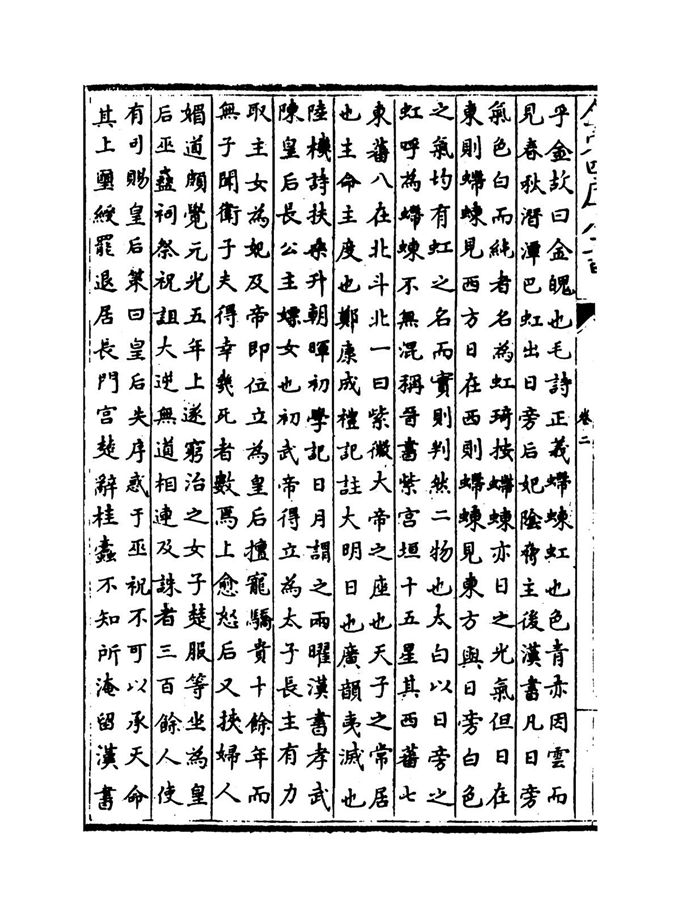 乎金故曰金魄也毛詩正義螮蝀虹也色青赤因雲而
見春秋潛潭巴虹出日旁后妃陰脅主後漢書凡日旁
氣色白而純者名為虹琦按螮蝀亦日之光氣但日在
東則螮蝀見西方日在西則螮蝀見東方與日旁白色
之氣均有虹之名而實則判然二物也太白以日旁之
虹呼為螮蝀不無混稱晉書紫宮垣十五星其西蕃七
東蕃八在北斗北一曰紫微大帝之座也天子之常居
也主命主度也鄭康成禮記註大明日也廣韻夷滅也
陸機詩扶桑升朝暉初學記日月謂之兩曜漢書孝武
陳皇后長公主嫖女也初武帝得立為太子長主有力
取主女為妃及帝即位立為皇后擅寵驕貴十餘年而
無子聞衛子夫得幸幾死者數焉上愈怒后又挾婦人
媚道頗覺元光五年上遂窮治之女子楚服等坐為皇
后巫蠱祠祭祝詛大逆無道相連及誅者三百餘人使
有司賜皇后策曰皇后失序惑于巫祝不可以承天命
其上璽綬罷退居長門宮楚辭桂蠹不知所淹留漢書
卷二